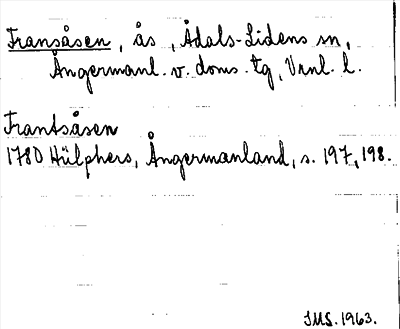 Fransåsen, ås, Ådals-Lidens sn,
Ångermanl. v. doms. tg, Vnl. l.
Frantsåsen
1780 Hülphers, Ångermanland, s. 197, 198.
IMS. 1963.